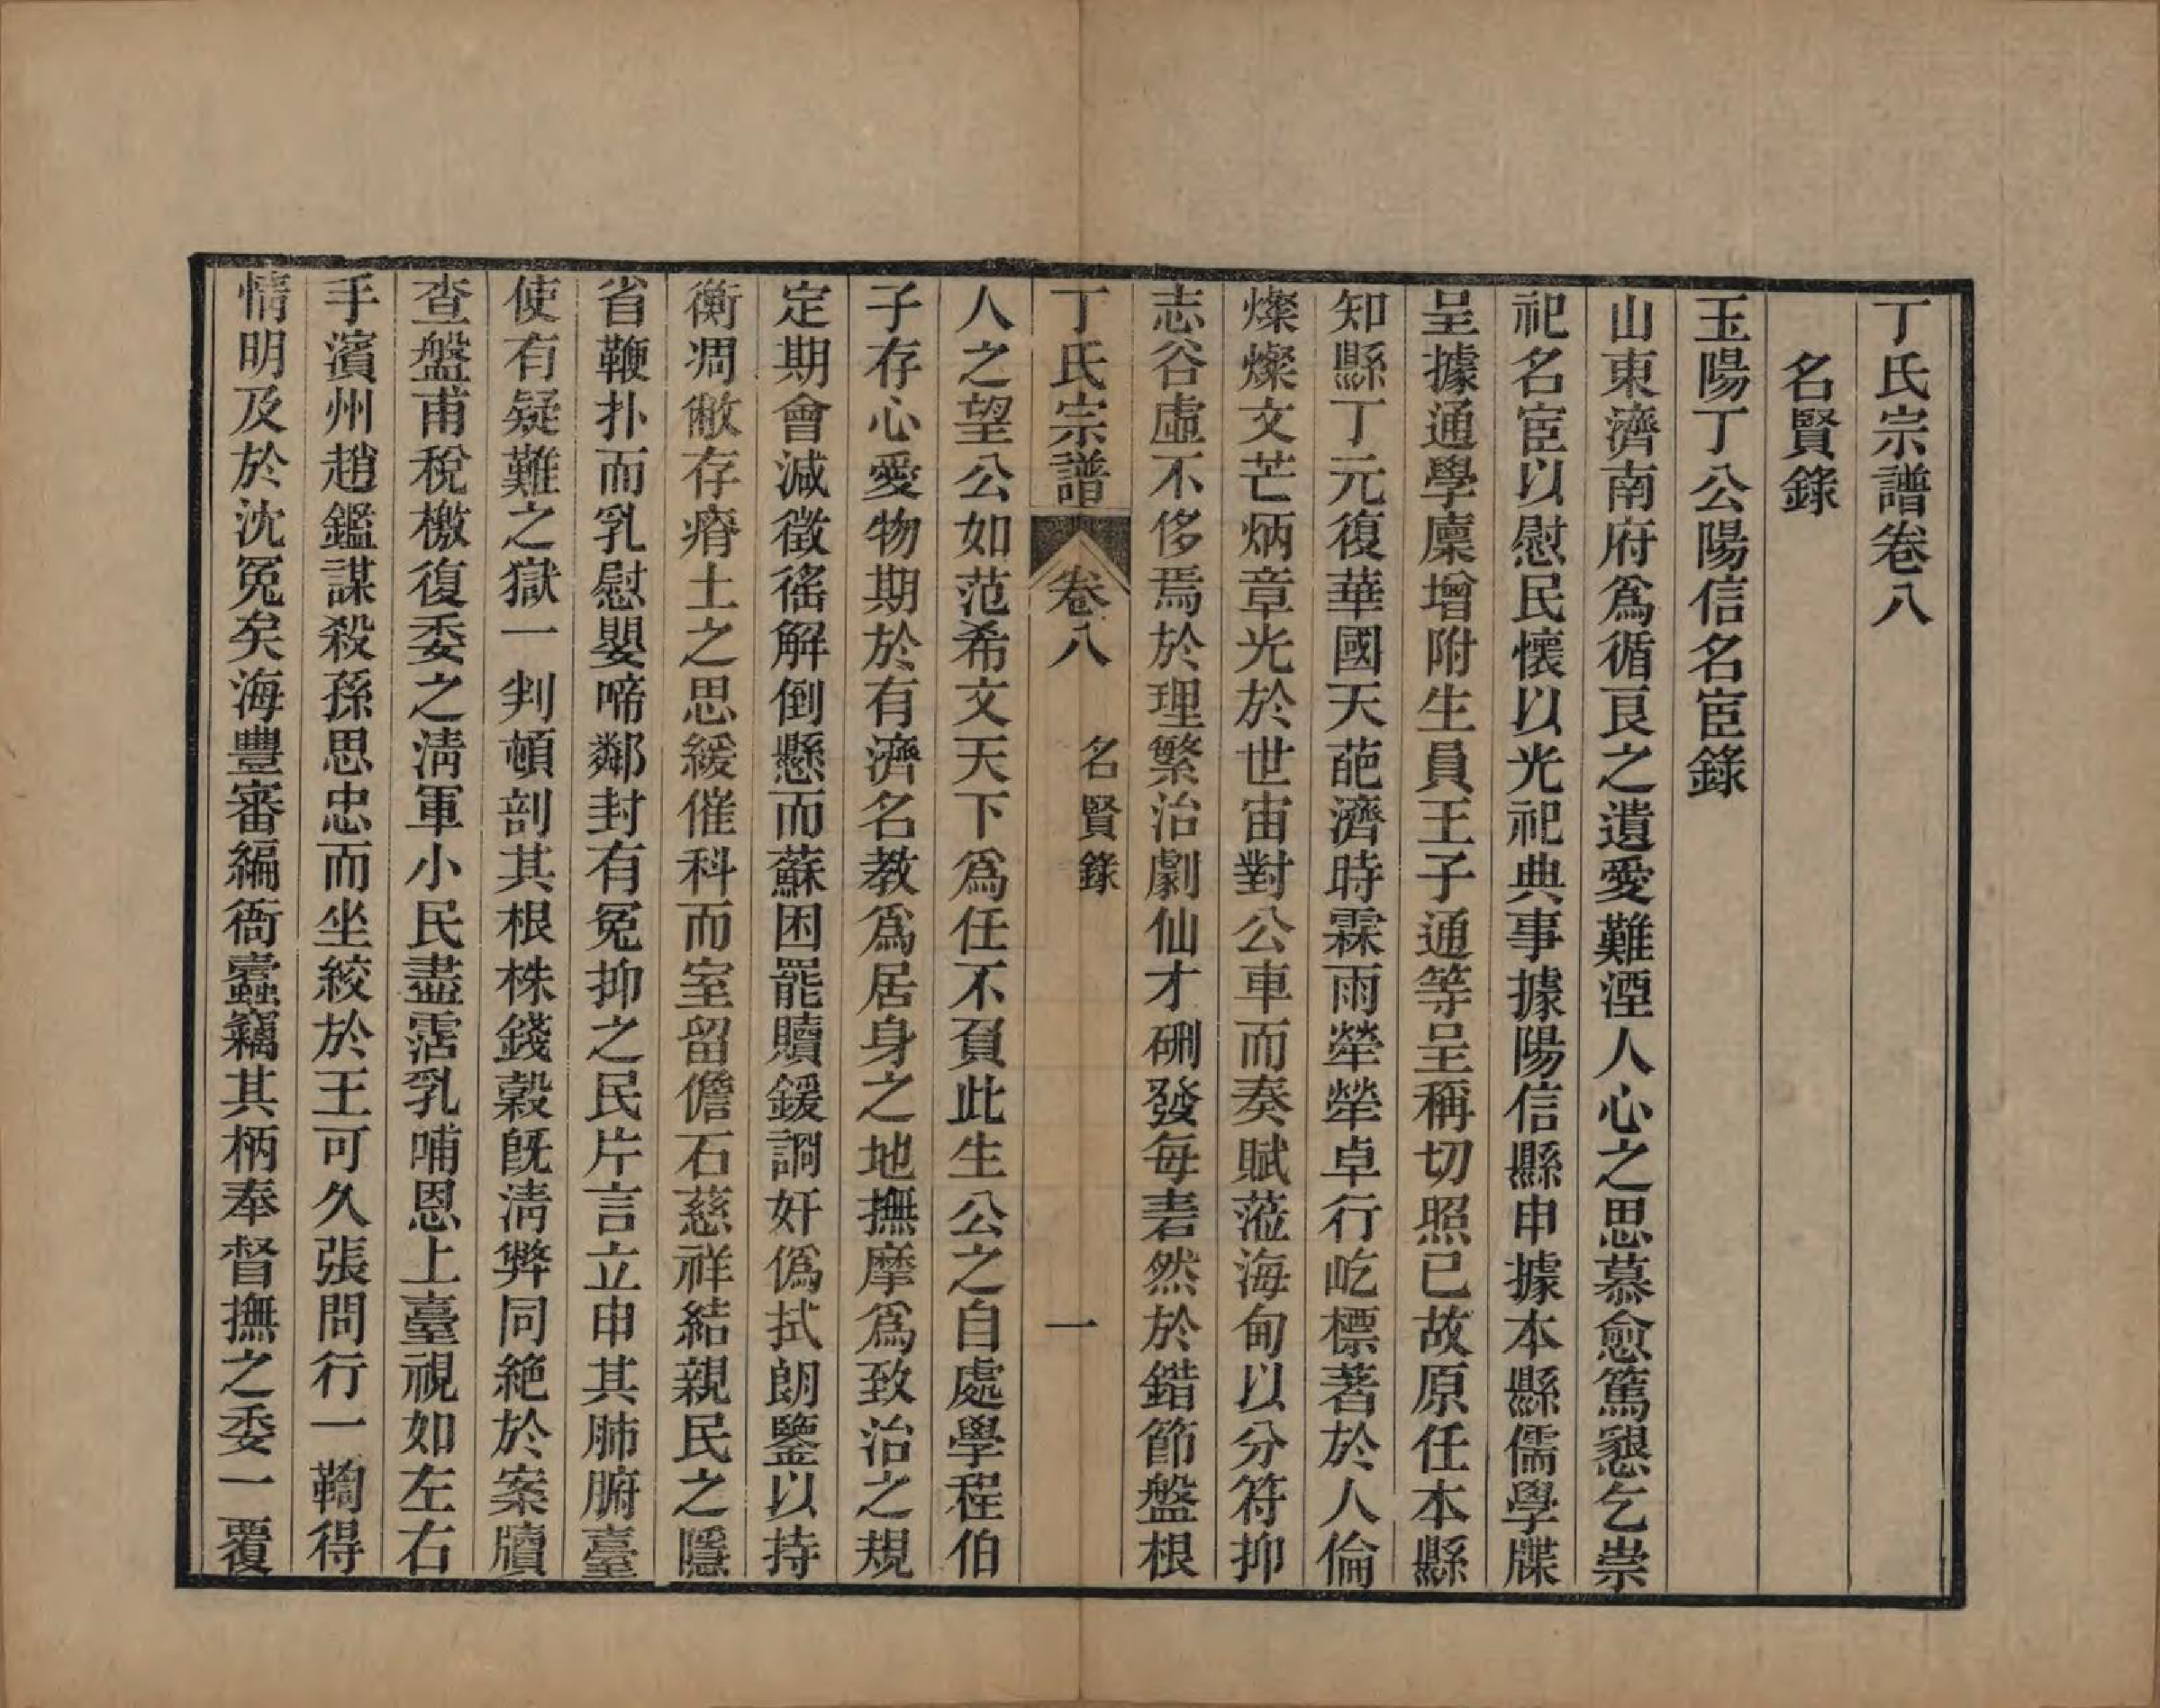 丁氏宗譜卷八
名賢錄
玉陽丁公陽信名宦錄
山東濟南府爲循良之遺愛難湮人心之思慕愈篤懇乞崇
祀名宦以慰民懷以光祀典事據陽信縣申據本縣儒學牒
呈據通學廩增附生員王子通等呈稱切照已故原任本縣
知縣丁元復華國天葩濟時霖雨犖犖卓行屹標著於人倫
燦燦文芒炳章光於世宙對公車而奏賦蒞海甸以分符抑
志谷虛不侈焉於理繁治劇仙才硎發每砉然於錯節盤根
丁氏宗譜 卷八 名賢錄 一
人之望公如范希文天下爲任不負此生公之自處學程伯
子存心愛物期於有濟名教爲居身之地撫摩爲致治之規
定期會減徵徭解倒懸而蘇困罷贖鍰調奸僞拭朗鑒以持
衡凋敝存瘠土之思緩催科而室留儋石慈祥結親民之隱
省鞭扑而乳慰嬰啼鄰封有冤抑之民片言立申其肺腑臺
使有疑難之獄一判頓剖其根株錢穀旣淸弊同絶於案牘
查盤甫稅檄復委之淸軍小民盡霑乳哺恩上臺視如左右
手濱州趙鑑謀殺孫思忠而坐絞於王可久張問行一鞫得
情明及於沈冤矣海豐審編衙蠹竊其柄奉督撫之委一覆